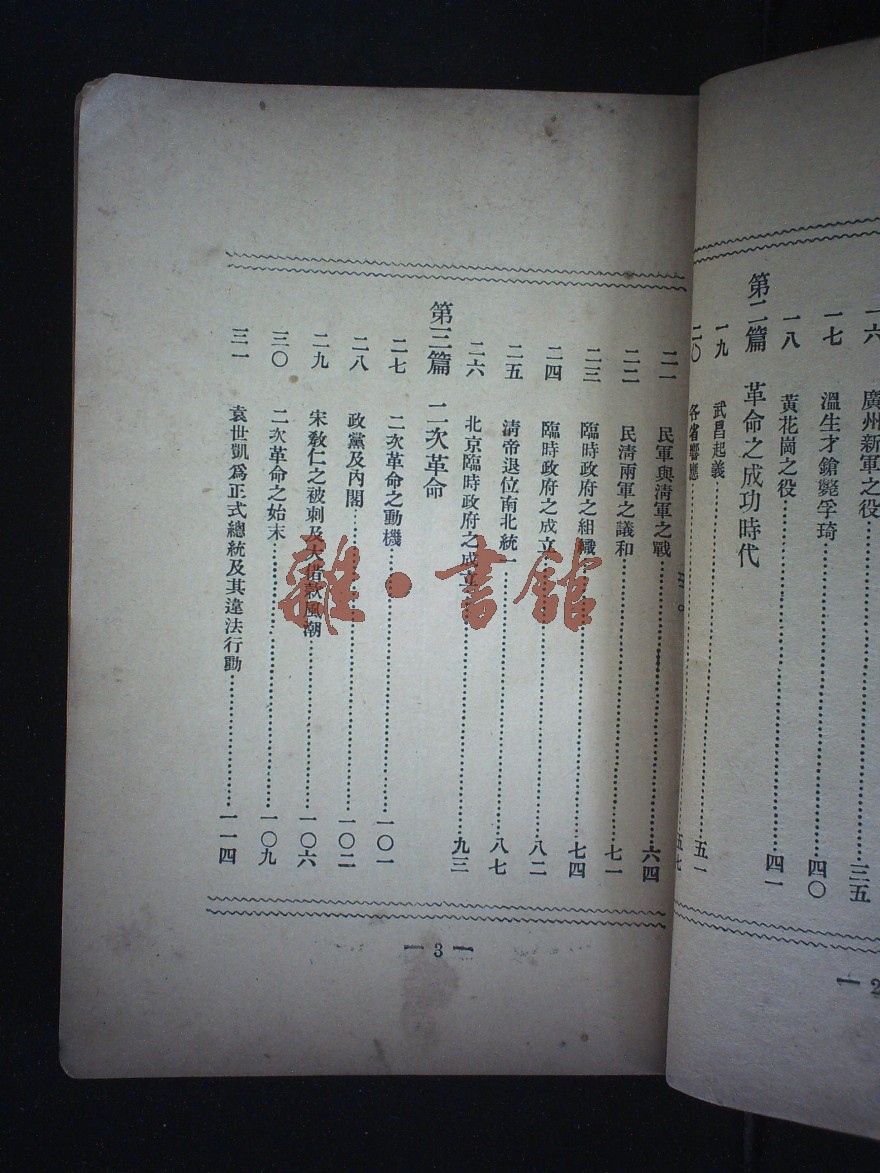 一六 廣州新軍之役……三五
一七 溫生才鎗斃孚琦……四〇
一八 黃花崗之役……四一
第二篇 革命之成功時代
一九 武昌起義……五一
二〇 各省響應……五七
— 2
二一 民軍與清軍之戰……六四
二二 民清兩軍之議和……七一
二三 臨時政府之組織……七四
二四 臨時政府之成立……八二
二五 清帝退位南北統一……八七
二六 北京臨時政府之成立……九三
第三篇 二次革命
二七 二次革命之動機……一〇一
二八 政黨及內閣……一〇二
二九 宋教仁之被刺及大借款風潮……一〇六
三〇 二次革命之始末……一〇九
三一 袁世凱爲正式總統及其違法行動……一一四
— 3 —
雜·書館